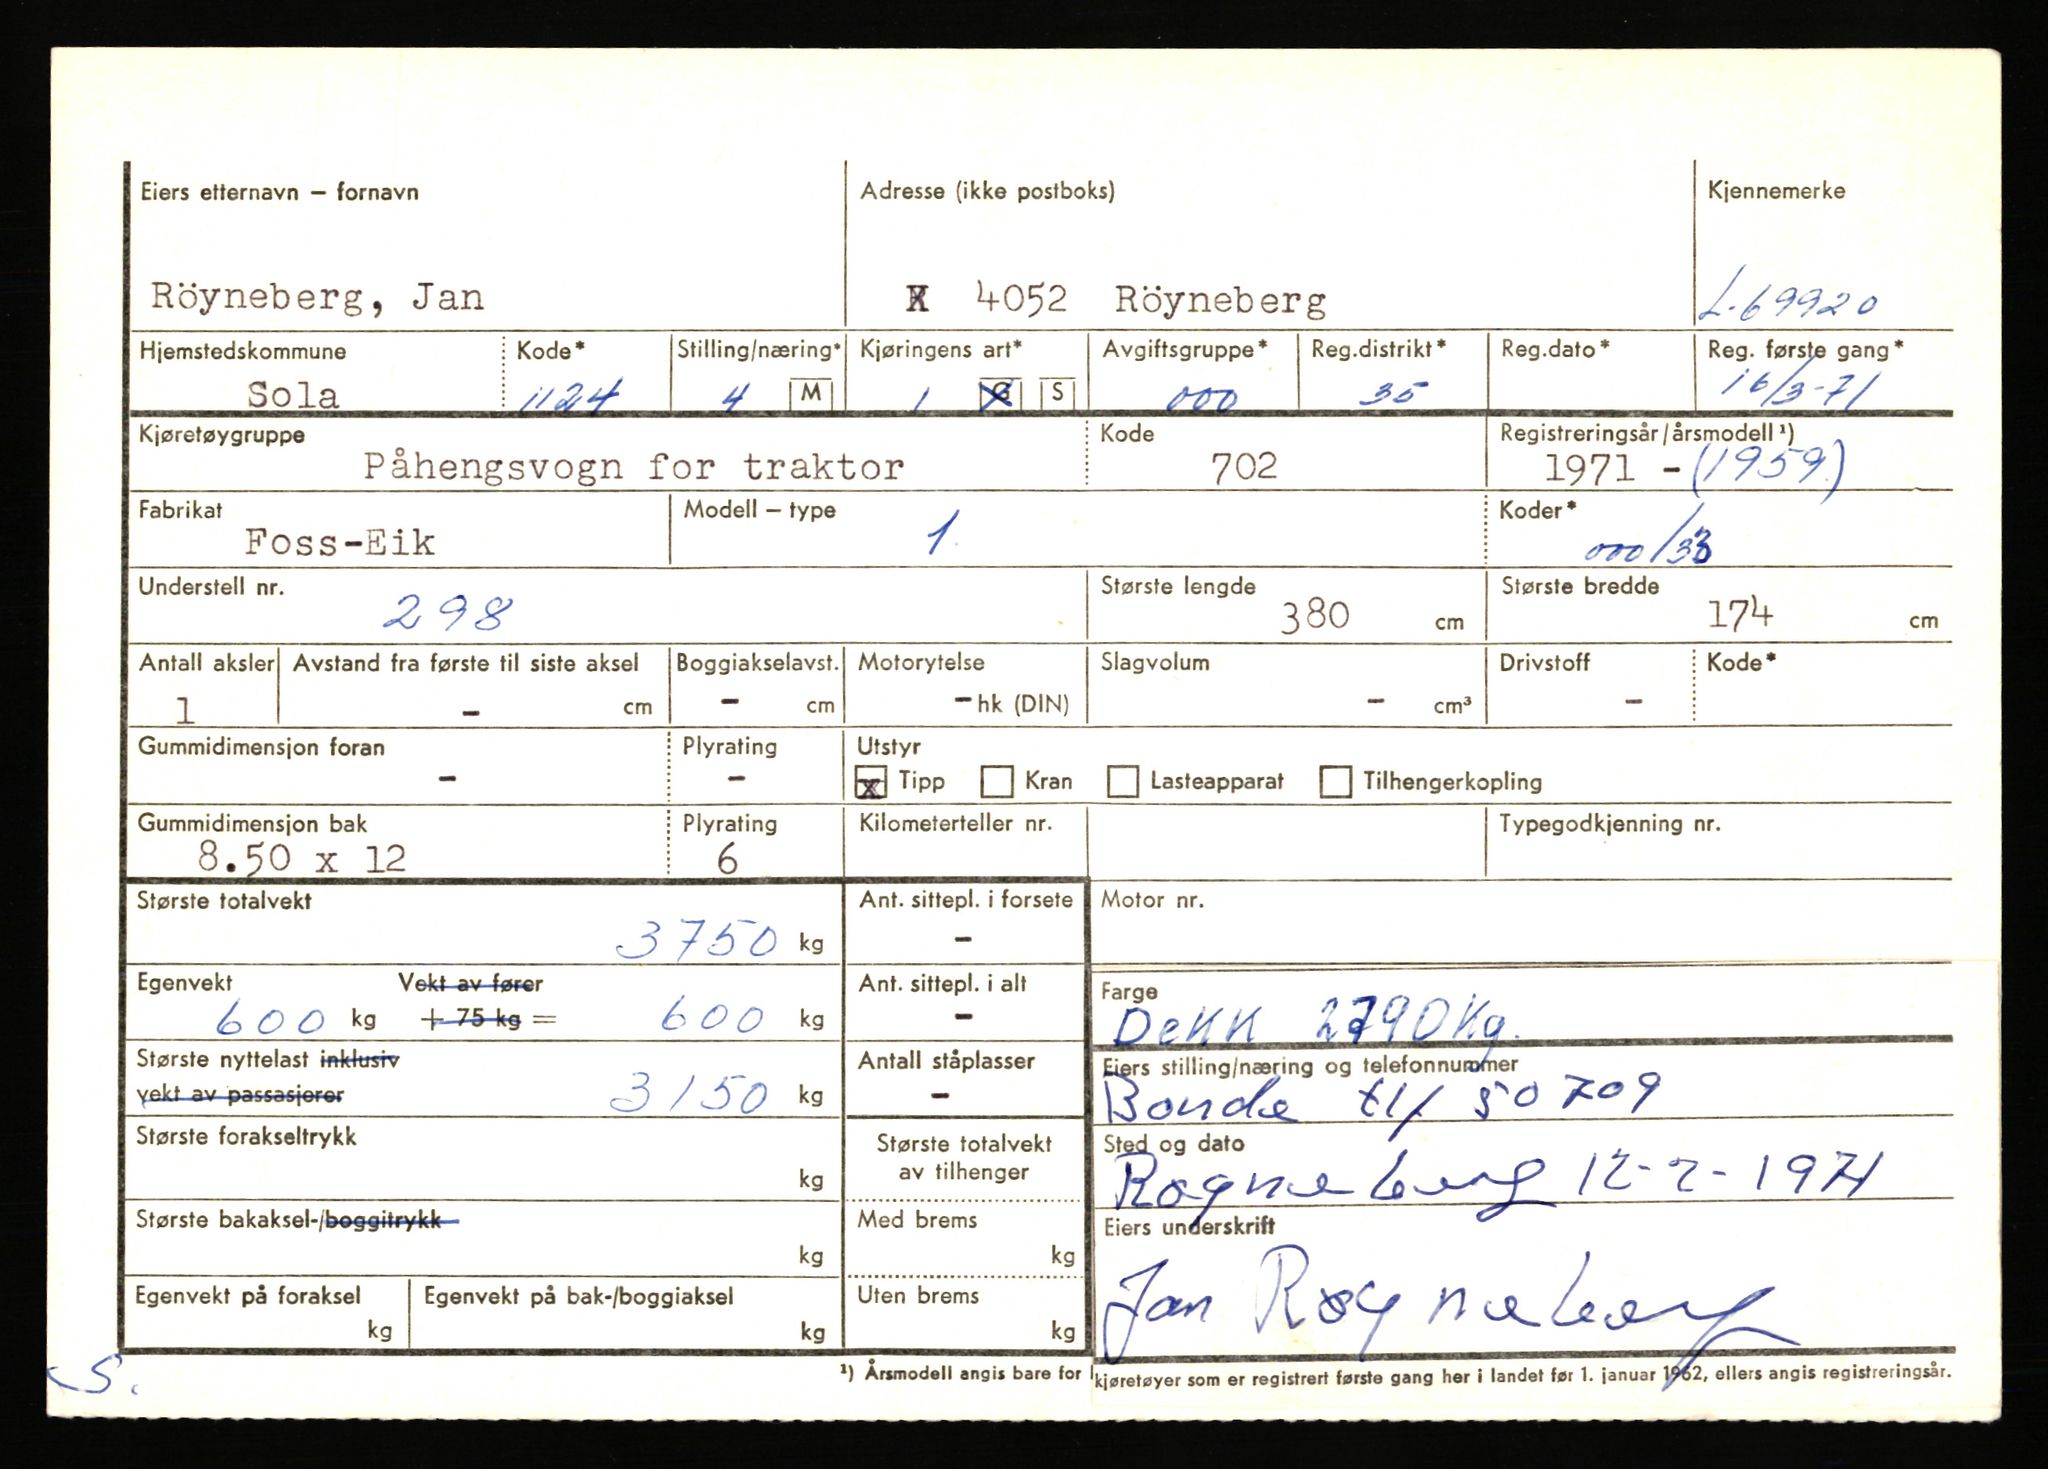 Eiers etternavn – fornavn    Adresse (ikke postboks)    Kjennemerke
Röyneberg, Jan    4052 Röyneberg    L-69920
Hjemstedskommune    Kode*    Stilling/næring*    Kjøringens art*    Avgiftsgruppe*    Reg.distrikt*    Reg.dato*    Reg. første gang*
Sola    1124    4    M    1    G    S    000    35    16/3-71
Kjøretøygruppe    Kode    Registreringsår/årsmodell¹)
Påhengsvogn for traktor    702    1971 - (1959)
Fabrikat    Modell – type    Koder*
Foss-Eik    1    000/33
Understell nr.    Største lengde    Største bredde
298    380 cm    174 cm
Antall aksler    Avstand fra første til siste aksel    Boggiakselavst.    Motorytelse    Slagvolum    Drivstoff    Kode*
1    - cm    - cm    - hk (DIN)    - cm³    -
Gummidimensjon foran    Plyrating    Utstyr
-    -    x Tipp    Kran    Lasteapparat    Tilhengerkopling
Gummidimensjon bak    Plyrating    Kilometerteller nr.    Typegodkjenning nr.
8.50 x 12    6
Største totalvekt    Ant. sittepl. i forsete    Motor nr.
3750 kg    -
Egenvekt    Vekt av fører    Ant. sittepl. i alt    Farge
600 kg    + 75 kg =    600 kg    -    Dekk 2790 Kg.
Største nyttelast inklusiv    Antall ståplasser    Eiers stilling/næring og telefonnummer
vekt av passasjerer    3150 kg    -    Bonde tlf 50709
Største forakseltrykk    Største totalvekt    Sted og dato
kg    av tilhenger    Røyneberg 12-2-1971
Største bakaksel-/boggitrykk    Med brems    Eiers underskrift
kg    kg
Egenvekt på foraksel    Egenvekt på bak-/boggiaksel    Uten brems    Jan Røyneberg
kg    kg    kg
S.    ¹) Årsmodell angis bare for kjøretøyer som er registrert første gang her i landet før 1. januar 1962, ellers angis registreringsår.